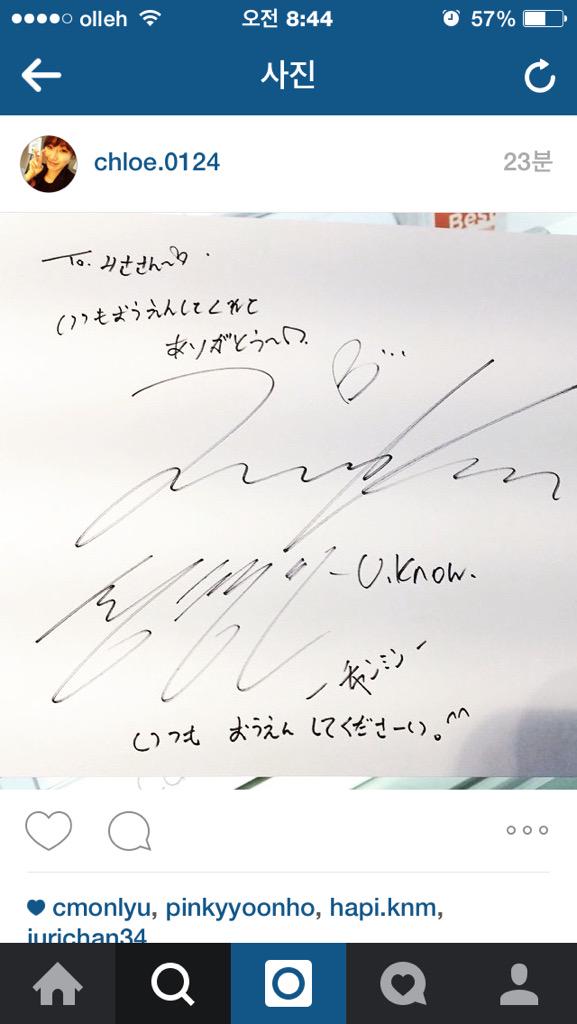 olleh 오전 8:44 57%
사진
chloe.0124 23분
Best
To. みささん~♡.
いつもおうえんしてくれて
ありがとう~♡.
- U.Know.
- チャンミン -
いつも おうえん してくださーい。^^
cmonlyu, pinkyyoonho, hapi.knm,
jurichan34